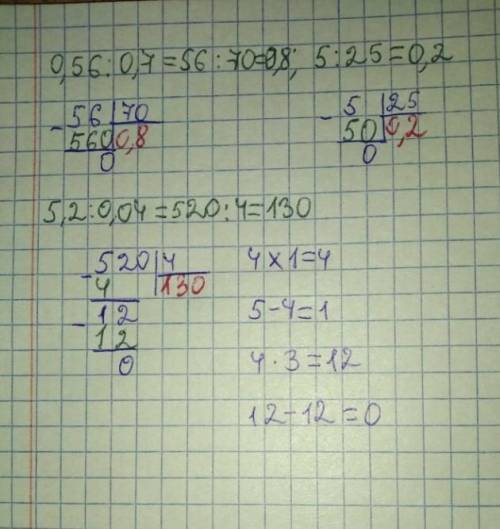 0,56:0,7=56:70=0,8; 5:25=0,2
56 70
- 560 0,8
0
5 25
- 50 0,2
0
5,2:0,04=520:4=130
- 520 4
4 130
- 12
12
0
4×1=4
5-4=1
4·3=12
12-12=0